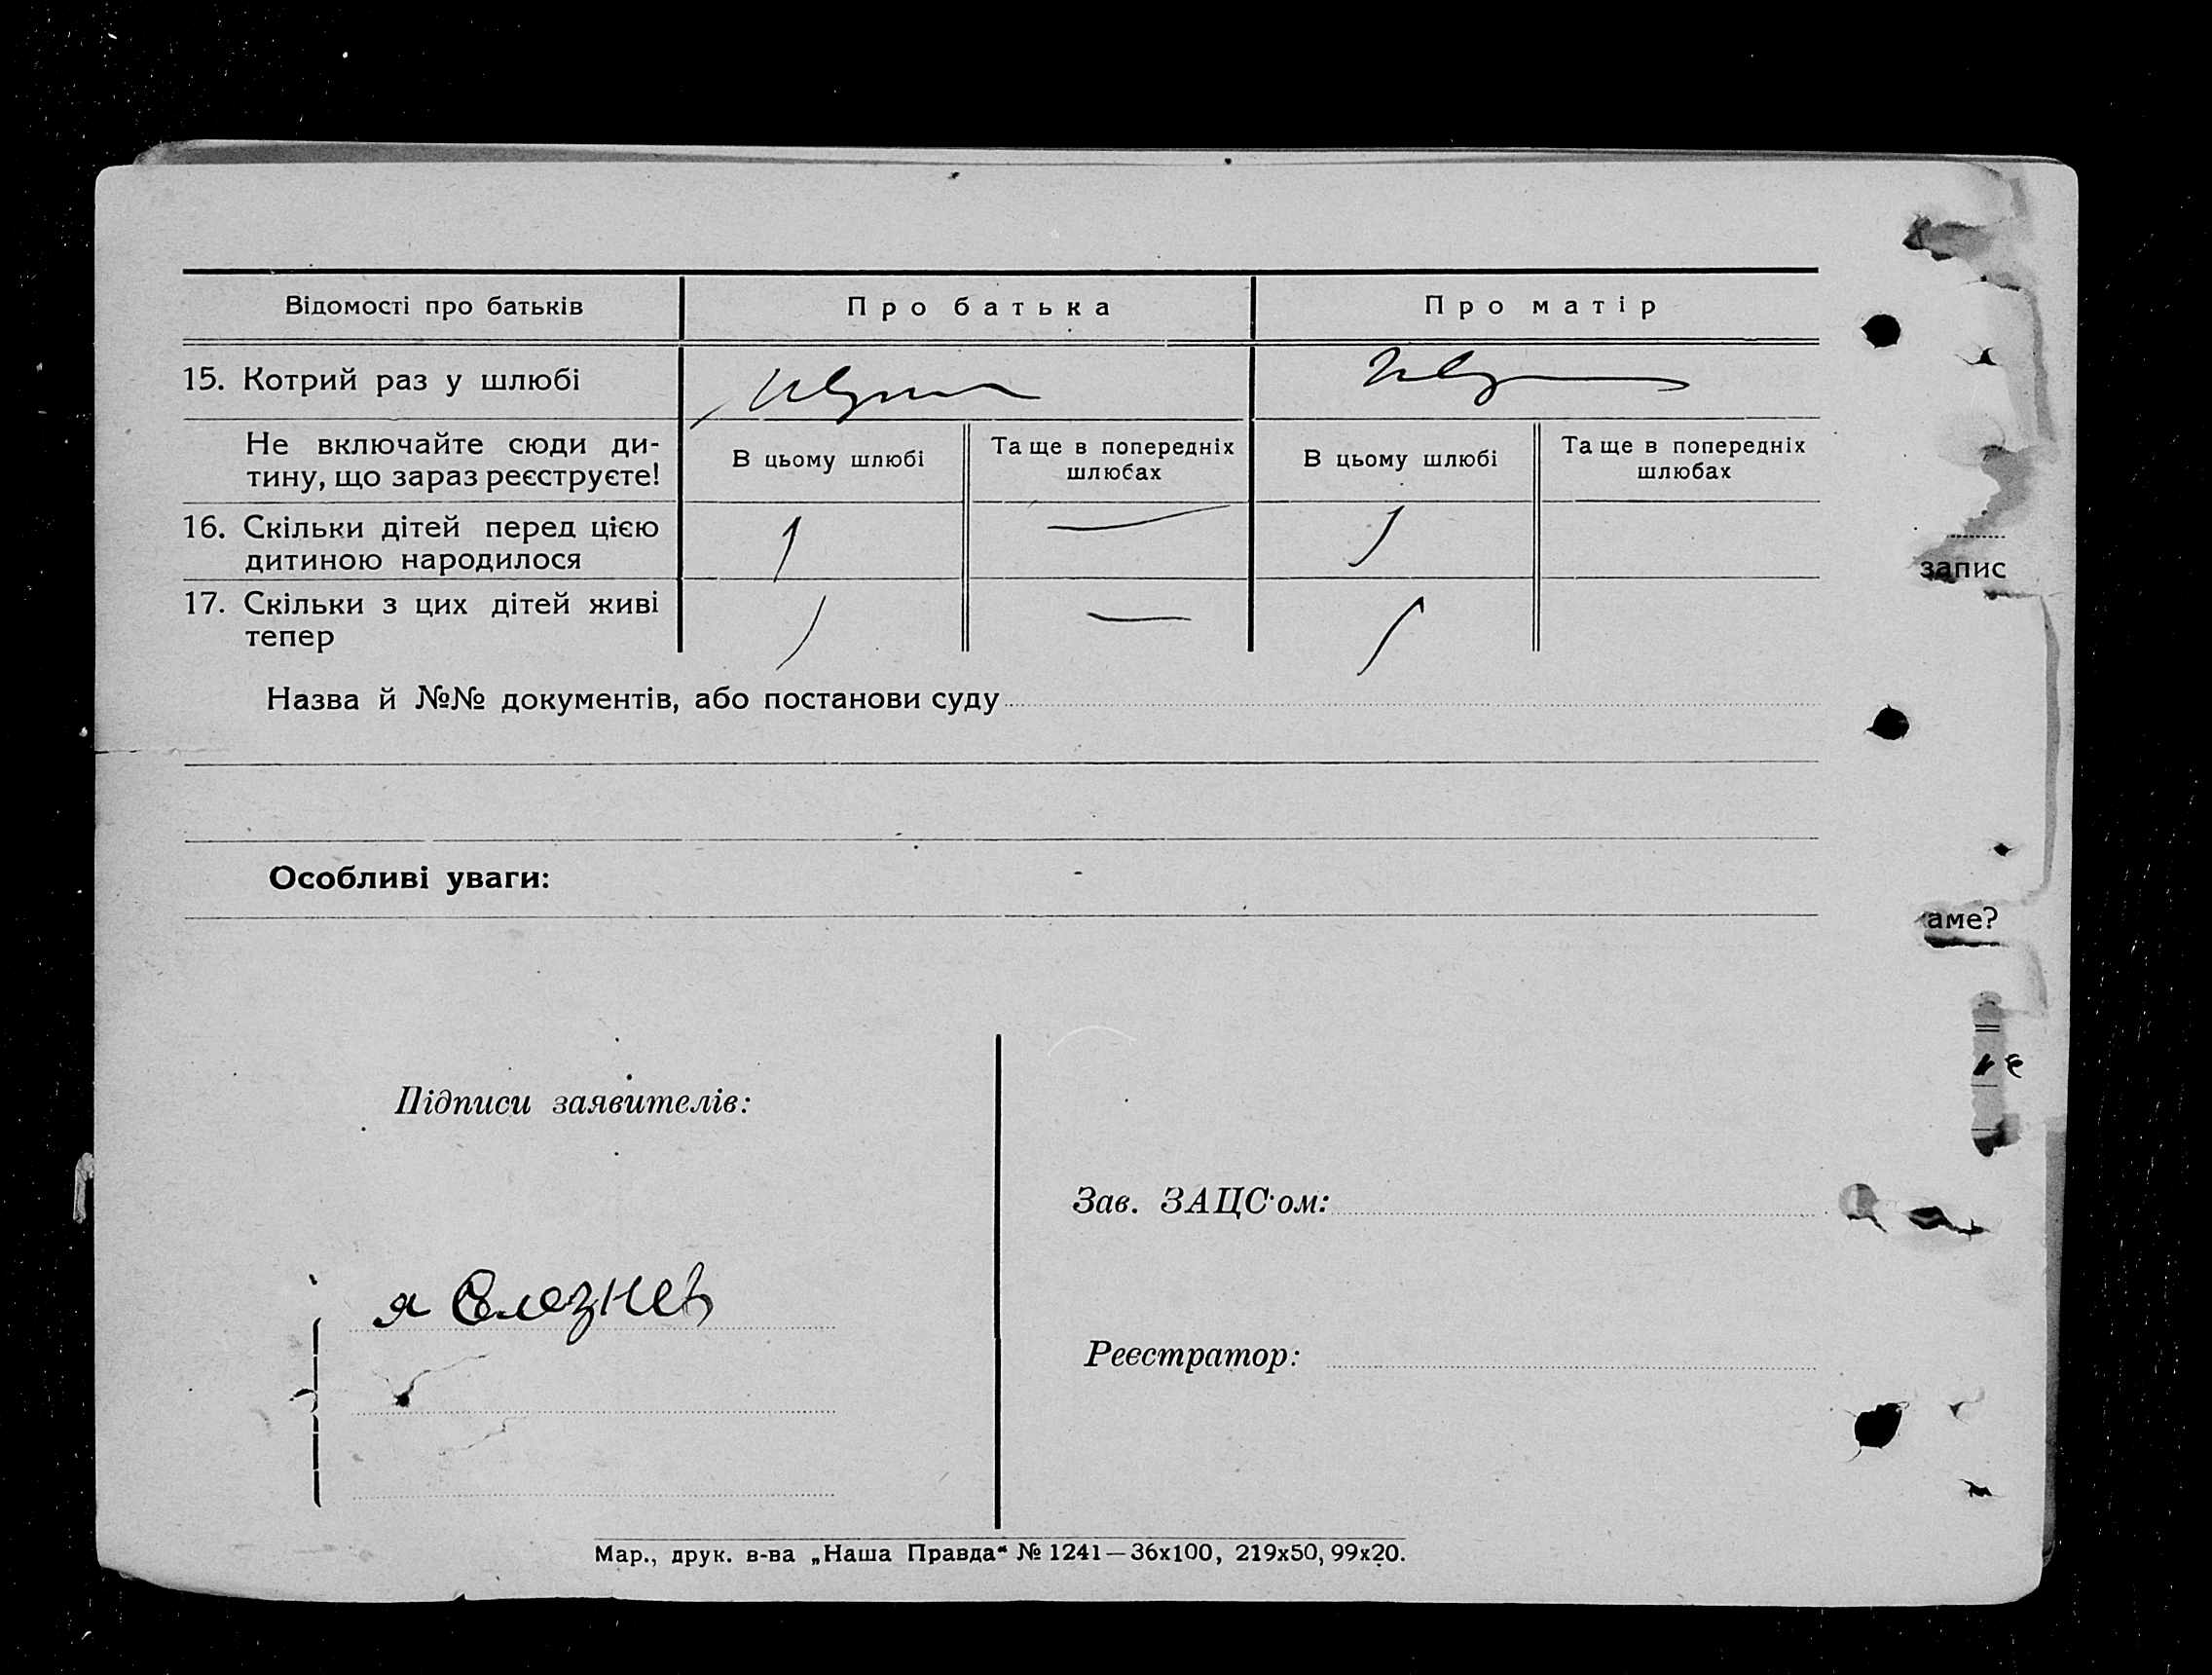 Відомості про батьків Про батька Про матір
15. Котрий раз у шлюбі
Не включайте сюди ди-
тину, що зараз реєструєте!
В цьому шлюбі Та ще в попередніх
шлюбах
В цьому шлюбі Та ще в попередніх
шлюбах
16. Скільки дітей перед цією
дитиною народилося
1 — 1
17. Скільки з цих дітей живі
тепер
1 — 1
Назва й №№ документів, або постанови суду
Особливі уваги:
запис
аме?
Підписи заявителів:
я
Зав. ЗАЦС'ом:
Реєстратор:
Мар., друк. в-ва „Наша Правда“ № 1241—36х100, 219х50, 99х20.